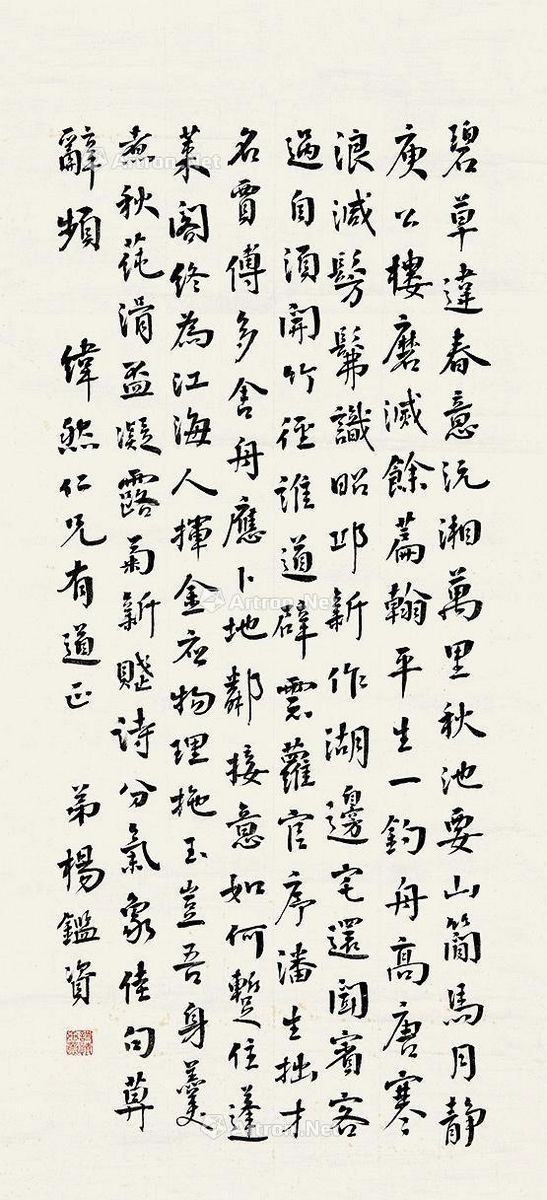 碧草違春意沅湘萬里秋池要山簡馬月靜
庾公樓磨滅餘篇翰平生一鈎舟高唐寒
浪減髣髴識昭邱新作湖邊宅還聞賓客
過自須開竹徑誰道避雲蘿官序潘生拙才
名賈傅多舍舟應卜地鄰接意如何蹔住蓬
萊閣終為江海人揮金應物理拖玉豈吾身羹
煮秋蒓滑盃凝露菊新賦詩分氣象佳句莫
辭頻 緯然仁兄有道正 弟楊鑑資
Artron.Net
Artron.Net
Artron.Net